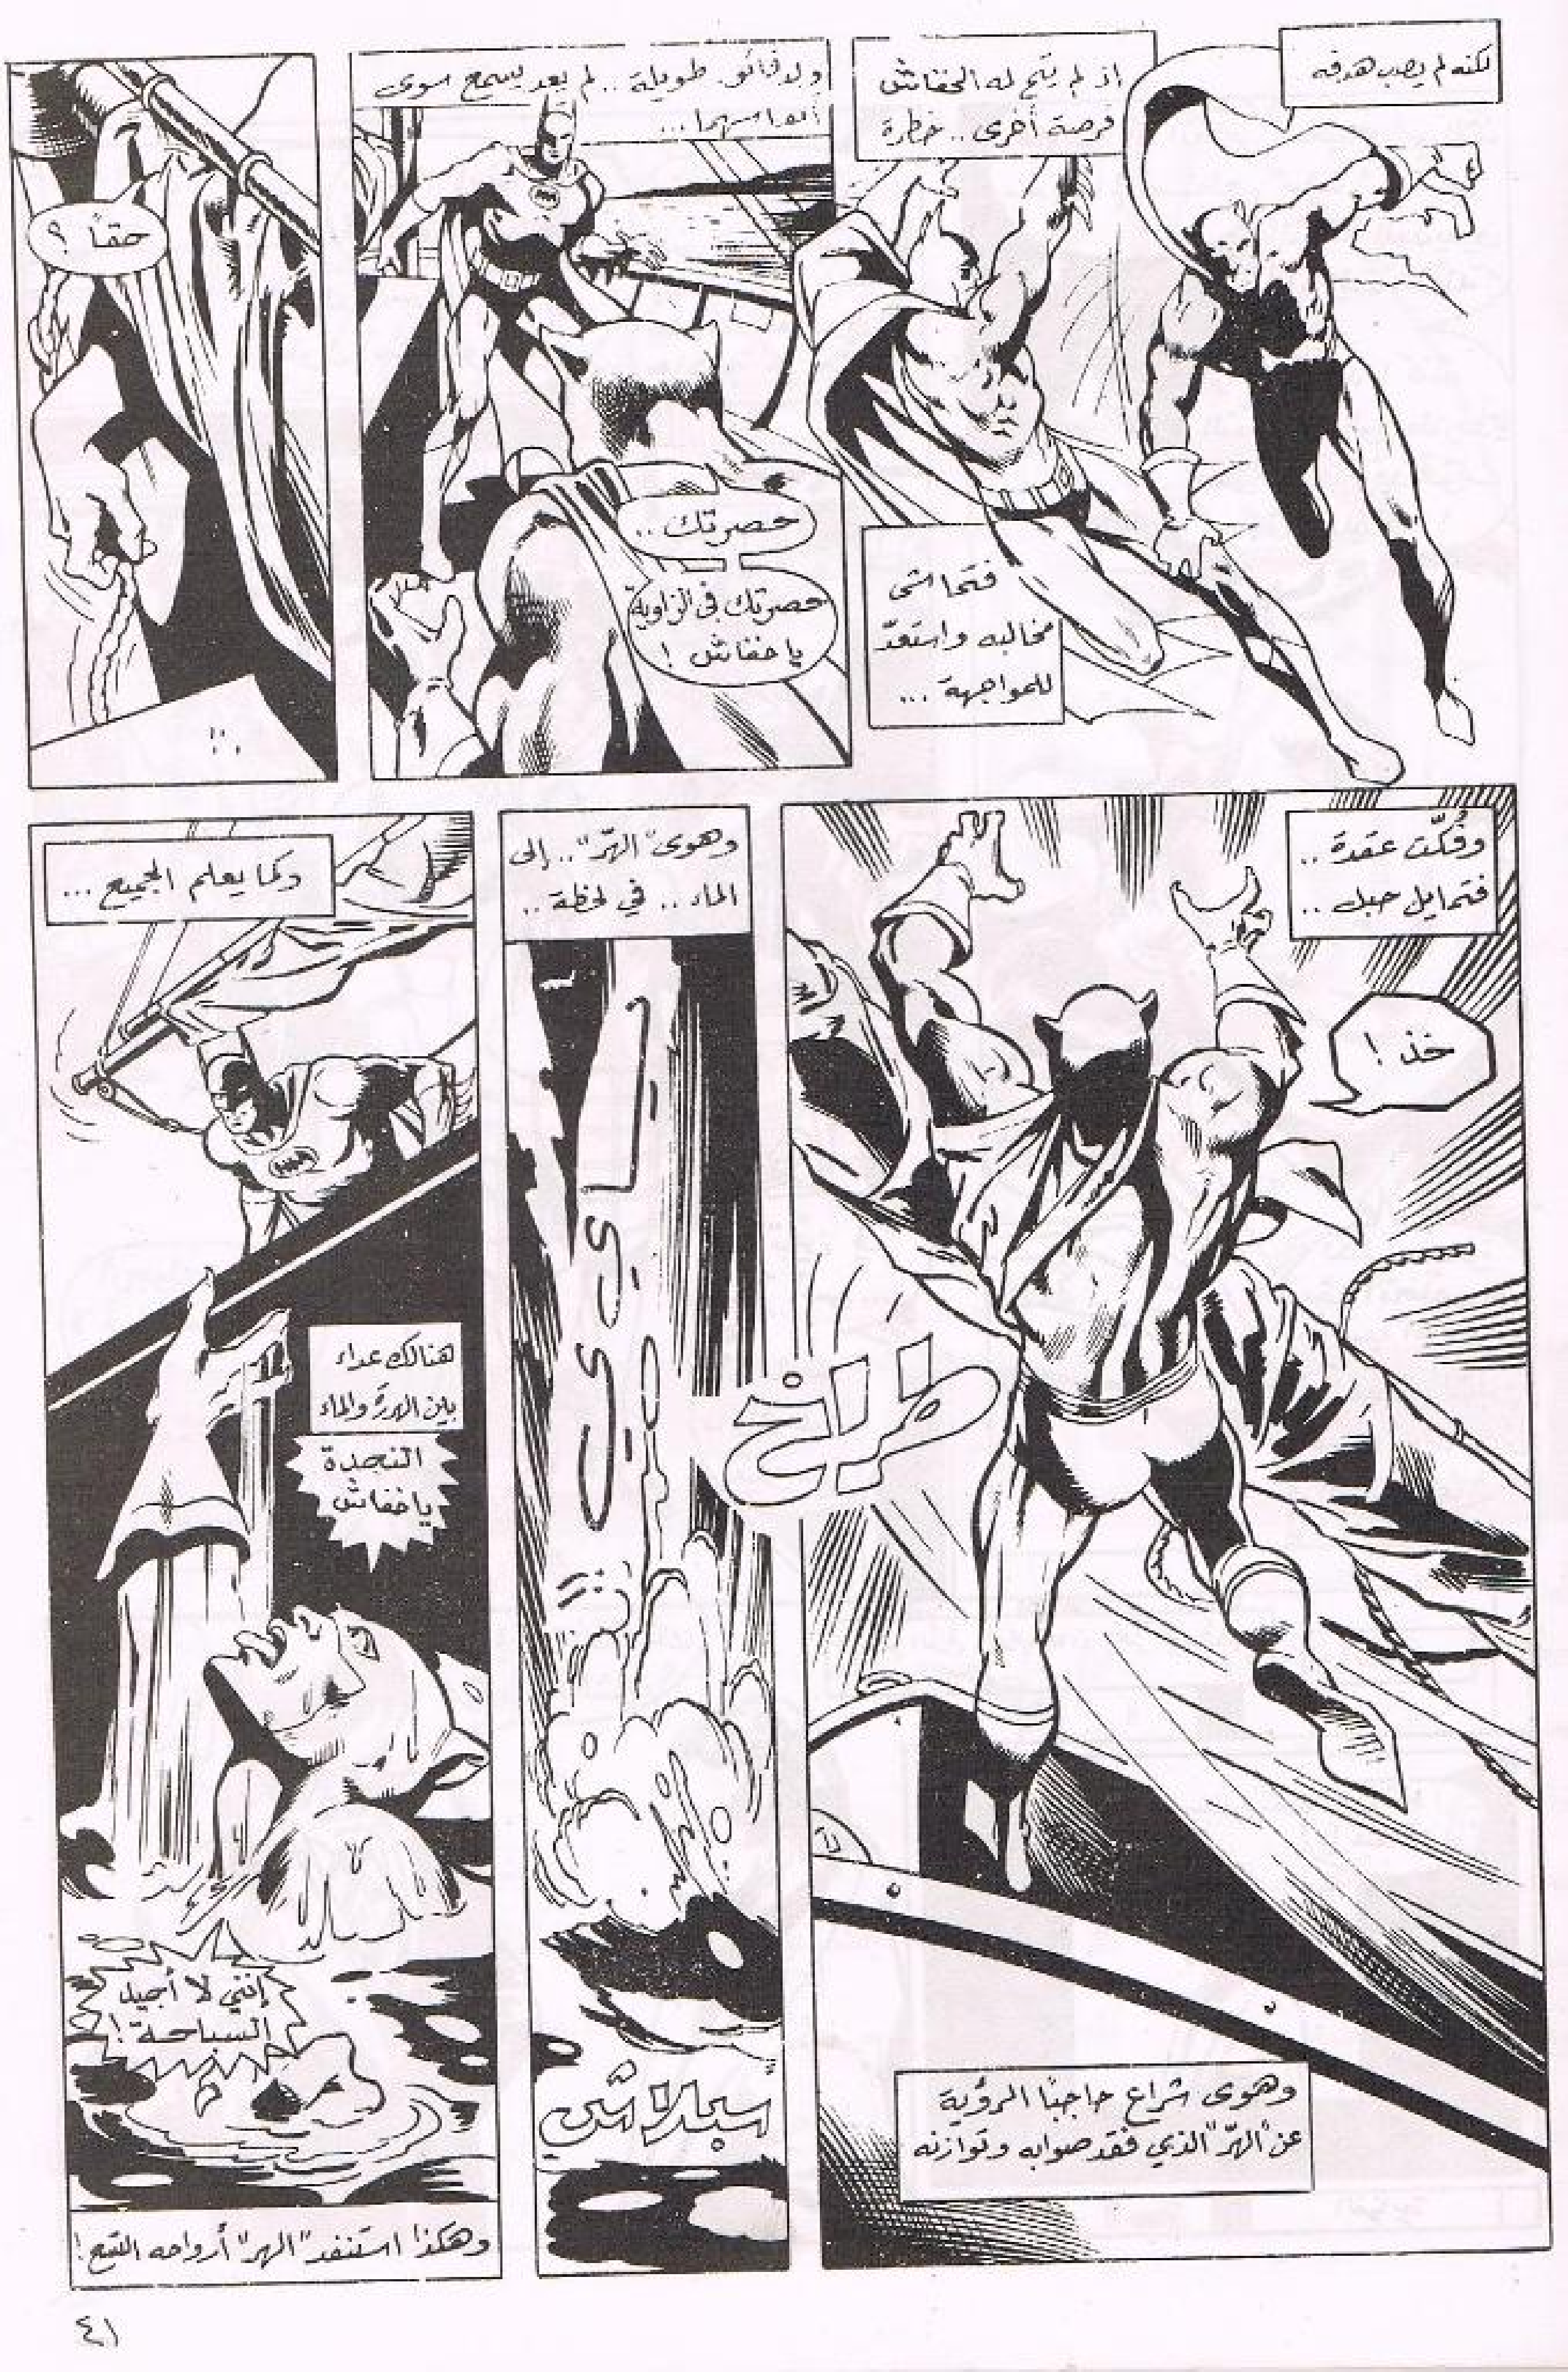 لكنه لم يصب هدفه
اذ لم يتح له الخفاش
فرصة أخرى.. خطرة
فتحاشى
مخالبه واستعدّ
للمواجهة ...
ولدقائق طويلة.. لم يعد يسمع سوى
أنفاسهما...
حصرتك..
حصرتك في الزاوية
يا خفاش !
حقاً ؟
وفُكّت عقدة ..
فتمايل حبل ..
خذ !
طراخ
وهوى شراع حاجبًا الرؤية
عن "الهرّ" الذي فقد صوابه وتوازنه
وهوى "الهرّ".. إلى
الماء .. في لحظة ..
سبلاش
وكما يعلم الجميع ...
هنالك عداء
بين الهررة والماء
النجدة
يا خفاش
إنني لا أجيد
السباحة !
وهكذا استنفد "الهر" أرواحه التسع !
٤١